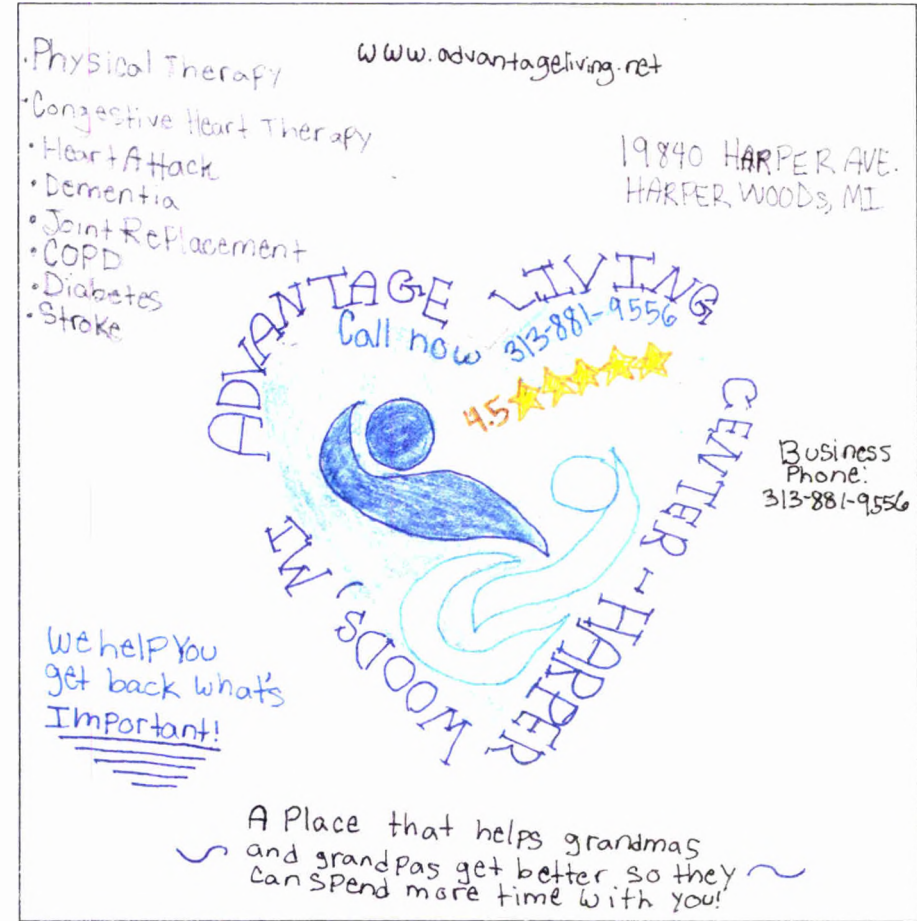 www.advantageliving.net
• Physical Therapy
• Congestive Heart Therapy
• Heart Attack
• Dementia
• Joint Replacement
• COPD
• Diabetes
• Stroke
19840 HARPER AVE.
HARPER WOODS, MI
ADVANTAGE LIVING CENTER-HARPER WOODS, MI
Call now 313-881-9556
4.5
Business
Phone:
313-881-9556
We help You
get back what's
Important!
A Place that helps grandmas
and grandpas get better so they
can spend more time with you!